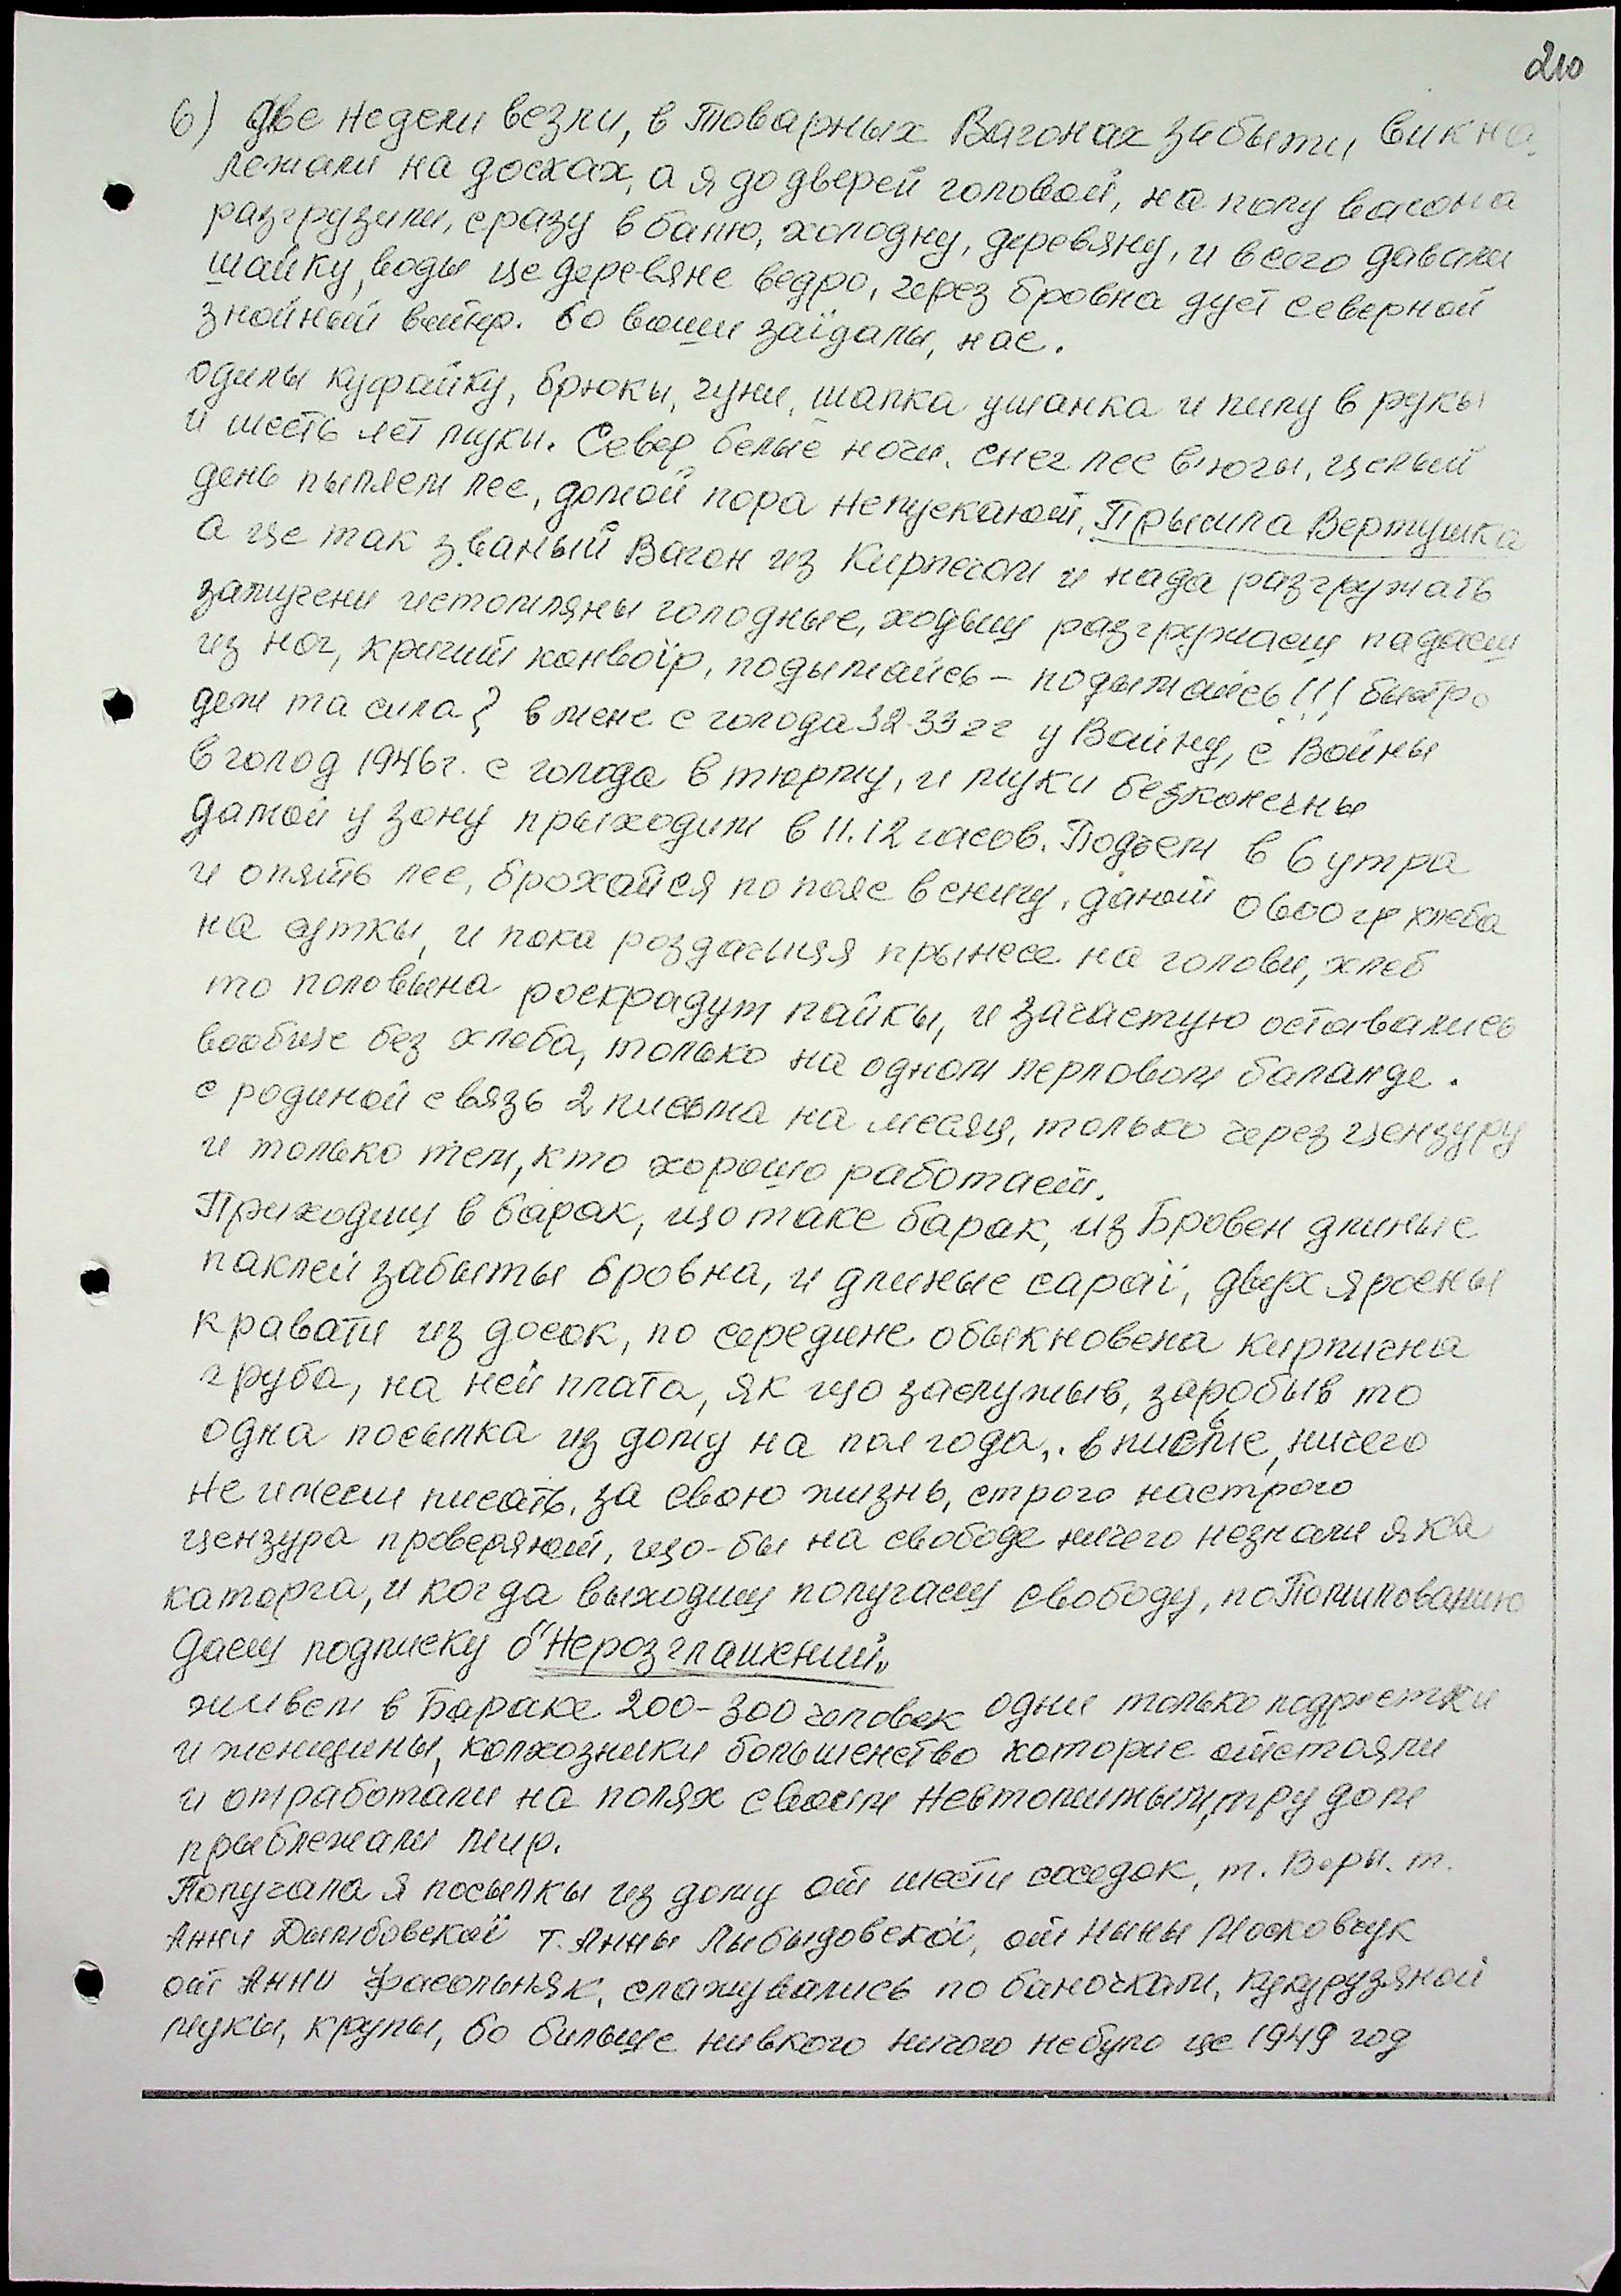 210
6) Две недели везли, в Товарных Вагонах забыти, викна,
лежали на досках, а я до дверей головой, на полу вагона
разгрузили, сразу в баню, холодну, деревяну, и всего давали
шайку, воды це деревяне ведро, через бровна дует северной
знойный ветер. бо воши заїдалы, нас.
одилы куфайку, брюкы, чуни, шапка ушанка и пилу в рукы
и шесть лет муки. Север белые ночи. снег лес в'юги, целый
день пыляем лес, домой пора непускают, Прышла Вертушка
а це так званый Вагон из Кирпечом и нада разгружать
замучени истомляны голодные, ходыш разгружаеш падаеш
из ног, кричит конвоїр, подымайсь – подымайсь!!! быстро
деж та сила? в мене с голода 32-33 гг у Вайну, с Войны
в голод 1946г. с голода в тюрму, и муки безконечны
дамой у зону прыходим в 11.12 часов. Подъем в 6 утра
и опять лес, брохайся по пояс в снигу, дают 0600 гр хлеба
на сутки, и пока роздачиця прынесе на голови, хлеб
то половына роскрадут пайкы, и зачастую оставались
вообще без хлеба, только на одном перловом баланде.
с родиной связь 2 письма на месяц, только через цензуру
и только тем, кто хорошо работает.
Приходиш в барак, що таке барак, из Бровен длиные
паклей забыты бровна, и длиные сараї, двух яросны
кравати из досок, по середине обыкновена кирпична
груба, на ней плата, як що заслужыв, заробыв то
одна посылка из дому на пол года,. в письме, ничего
не имееш писать, за свою жизнь, строго настрого
цензура проверяют, що-бы на свободе ничего незнали яка
каторга, и когда выходиш получаеш свободу, по Помилованию
даеш подписку о "Нерозглашении"
живем в Бараке 200-300 человек одни только подростки
и женщины, колхозники большенство которие отстояли
и отработали на полях своим невтомимым, трудом
прыближали мир.
Получала я посылкы из дому от шести соседок, т. Веры. т.
Анни Дымбовской т. Анны Лыбыдовской, от Нины Московчук
от Анни Фасольняк, слажувались по баночкам, кукурузяной
мукы, крупы, бо бильше нивкого ничого небуло це 1949 год